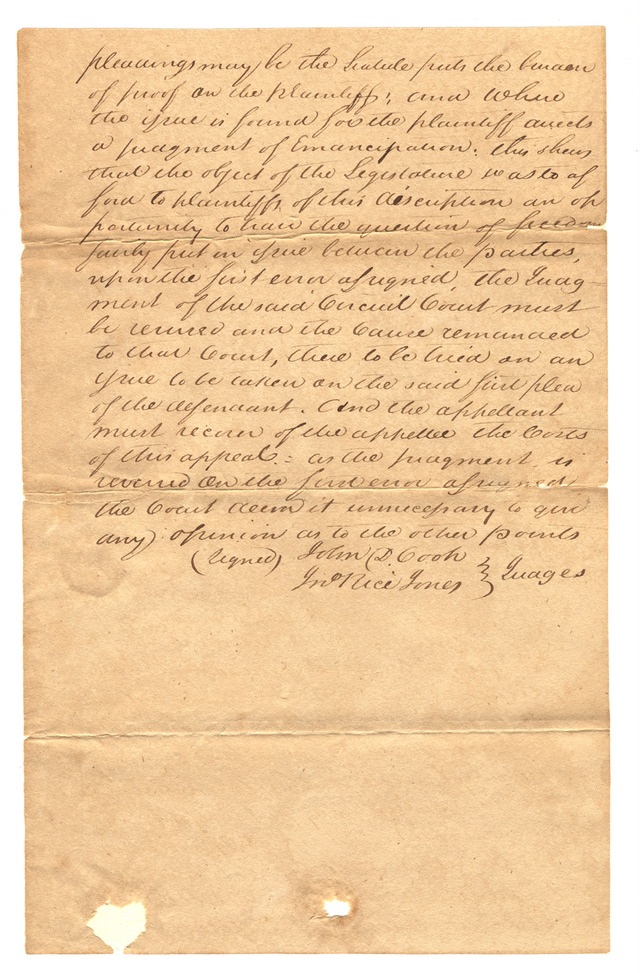 pleadings may be the Statute puts the burden
of proof on the Plaintiff; and where
the issue is found for the plaintiff directs
a judgment of Emancipation. this shews
that the object of the Legislature was to af
ford to plaintiffs of this discription an op
portunity to have the question of freedom
fairly put in issue between the parties,
upon the first error assigned, the Judg-
ment of the said Circuit Court must
be reversed and the Cause remanded
to that Court, there to be tried on an
issue to be taken on the said first plea
of the defendant. And the appellant
must recover of the appellee the Costs
of this appeal: as the judgment is
reversed on the first error assigned
the Court deem it unnecessary to give
any opinion as to the other points
(signed) John D. Cook
Jno Rice Jones } Judges